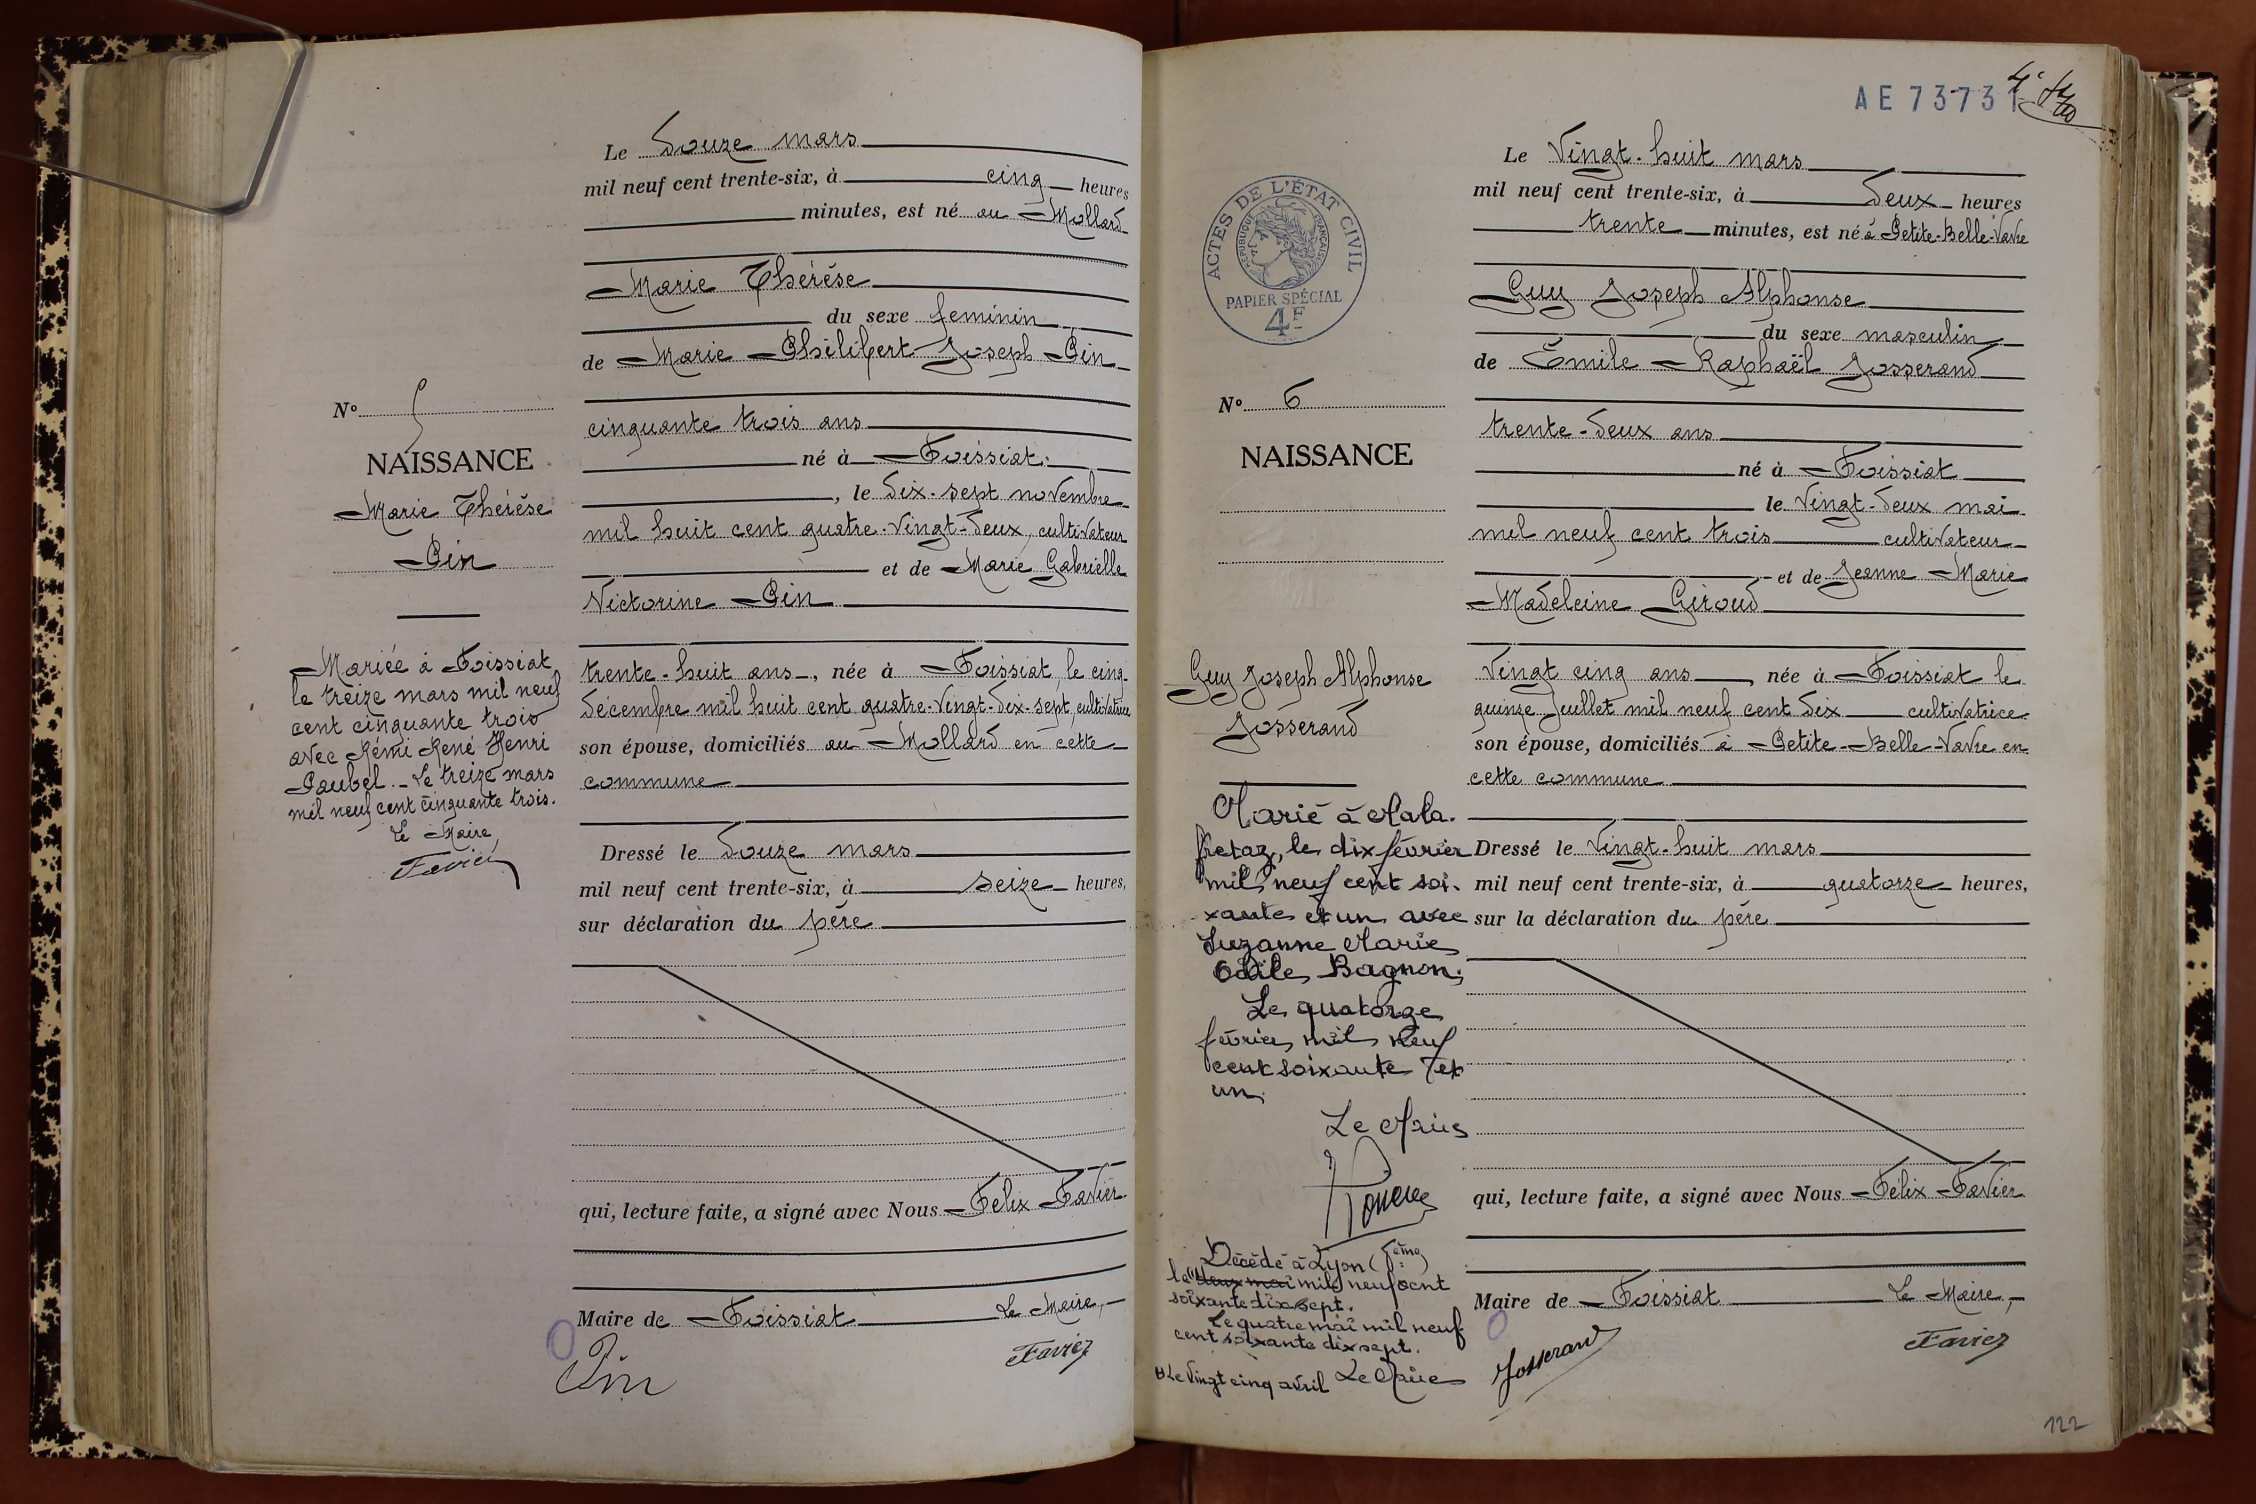 Le douze mars
mil neuf cent trente-six, à cinq heures
minutes, est né au Mollard
Marie Thérèse
du sexe feminin
de Marie Philibert Joseph Pin
N° 5
NAISSANCE
Marie Thérèse
Pin
cinquante trois ans
né à Foissiat.
, le dix-sept novembre
mil huit cent quatre-vingt-deux, cultivateur
et de Marie Gabrielle
Victorine Pin
trente-huit ans, née à Foissiat, le cinq
décembre mil huit cent quatre-vingt-dix-sept, cultivatrice
son épouse, domiciliés au Mollard en cette
commune
Mariée à Foissiat
le treize mars mil neuf
cent cinquante trois
avec Rémi René Henri
Paubel. Le treize mars
mil neuf cent cinquante trois.
Le Maire,
Favier
Dressé le douze mars
mil neuf cent trente-six, à seize heures,
sur déclaration du père
qui, lecture faite, a signé avec Nous Félix Favier
Maire de Foissiat Le Maire,
Pin Favier
AE 73731
ACTES DE L'ÉTAT CIVIL
RÉPUBLIQUE FRANÇAISE
PAPIER SPÉCIAL
4F
Le Vingt-huit mars
mil neuf cent trente-six, à deux heures
trente minutes, est né à Petite-Belle-Vavre
Guy Joseph Alphonse
du sexe masculin
de Émile Raphaël Josserand
N° 6
NAISSANCE
Guy Joseph Alphonse
Josserand
trente-deux ans
né à Foissiat
le vingt-deux mai
mil neuf cent trois cultivateur
et de Jeanne Marie
Madeleine Giroud
Vingt cinq ans, née à Foissiat le
quinze Juillet mil neuf cent dix cultivatrice
son épouse, domiciliés à Petite-Belle-Vavre en
cette commune
Marié à Mala-
fretaz, le dix février
mil neuf cent soi-
xante et un avec
Suzanne Marie
Odile Bagnon.
Le quatorze
février mil neuf
cent soixante et
un.
Le Maire
Décédé à Lyon (5ème)
le deux mai mil neuf cent
soixante dix sept.
Le quatre mai mil neuf
cent soixante dix sept.
Le vingt cinq avril Le Maire
Dressé le Vingt-huit mars
mil neuf cent trente-six, à quatorze heures,
sur la déclaration du père
qui, lecture faite, a signé avec Nous Félix Favier
Maire de Foissiat Le Maire,
Josserand Favier
122